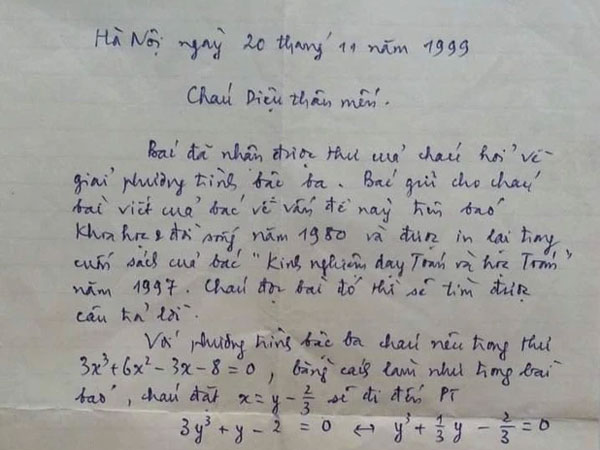 Hà Nội ngày 20 tháng 11 năm 1999
Cháu Diệu thân mến.
Bác đã nhận được thư của cháu hỏi về
giải phương trình bậc ba. Bác gửi cho cháu
bài viết của bác về vấn đề này trên báo
Khoa học & đời sống năm 1980 và được in lại trong
cuốn sách của bác "Kinh nghiệm dạy Toán và học Toán"
năm 1997. Cháu đọc bài đó thì sẽ tìm được
câu trả lời.
Với phương trình bậc ba cháu nêu trong thư
3x³+6x²-3x-8=0, bằng cách làm như trong bài
báo, cháu đặt x=y-2/3 sẽ đi đến PT
3y³+y-2=0 ↔ y³+1/3y-2/3=0